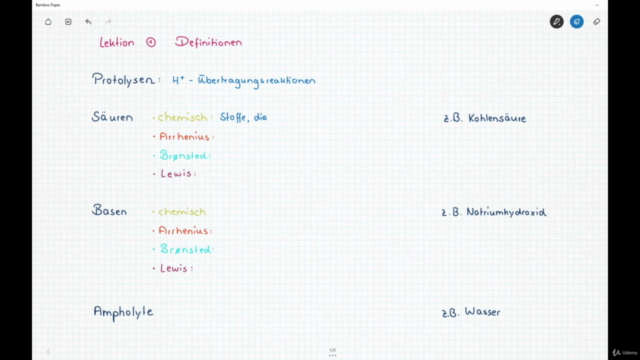 Bamboo Paper
Lektion ① Definitionen
Protolysen: H⁺ - Übertragungsreaktionen
Säuren • chemisch: Stoffe, die z.B. Kohlensäure
• Arrhenius:
• Brønsted:
• Lewis:
Basen • chemisch z.B. Natriumhydroxid
• Arrhenius:
• Brønsted:
• Lewis:
Ampholyte z.B. Wasser
1/1
Udemy